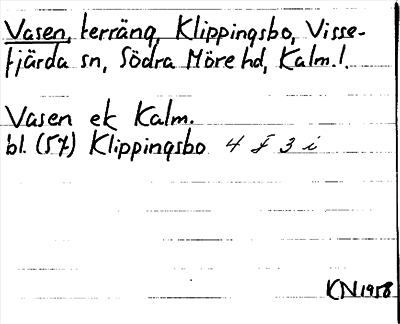 Vasen, terräng, Klippingsbo, Visse-
fjärda sn, Södra Möre hd, Kalm. l.
Vasen ek Kalm.
bl. (57) Klippingsbo 4 F 3 i
KN 1958